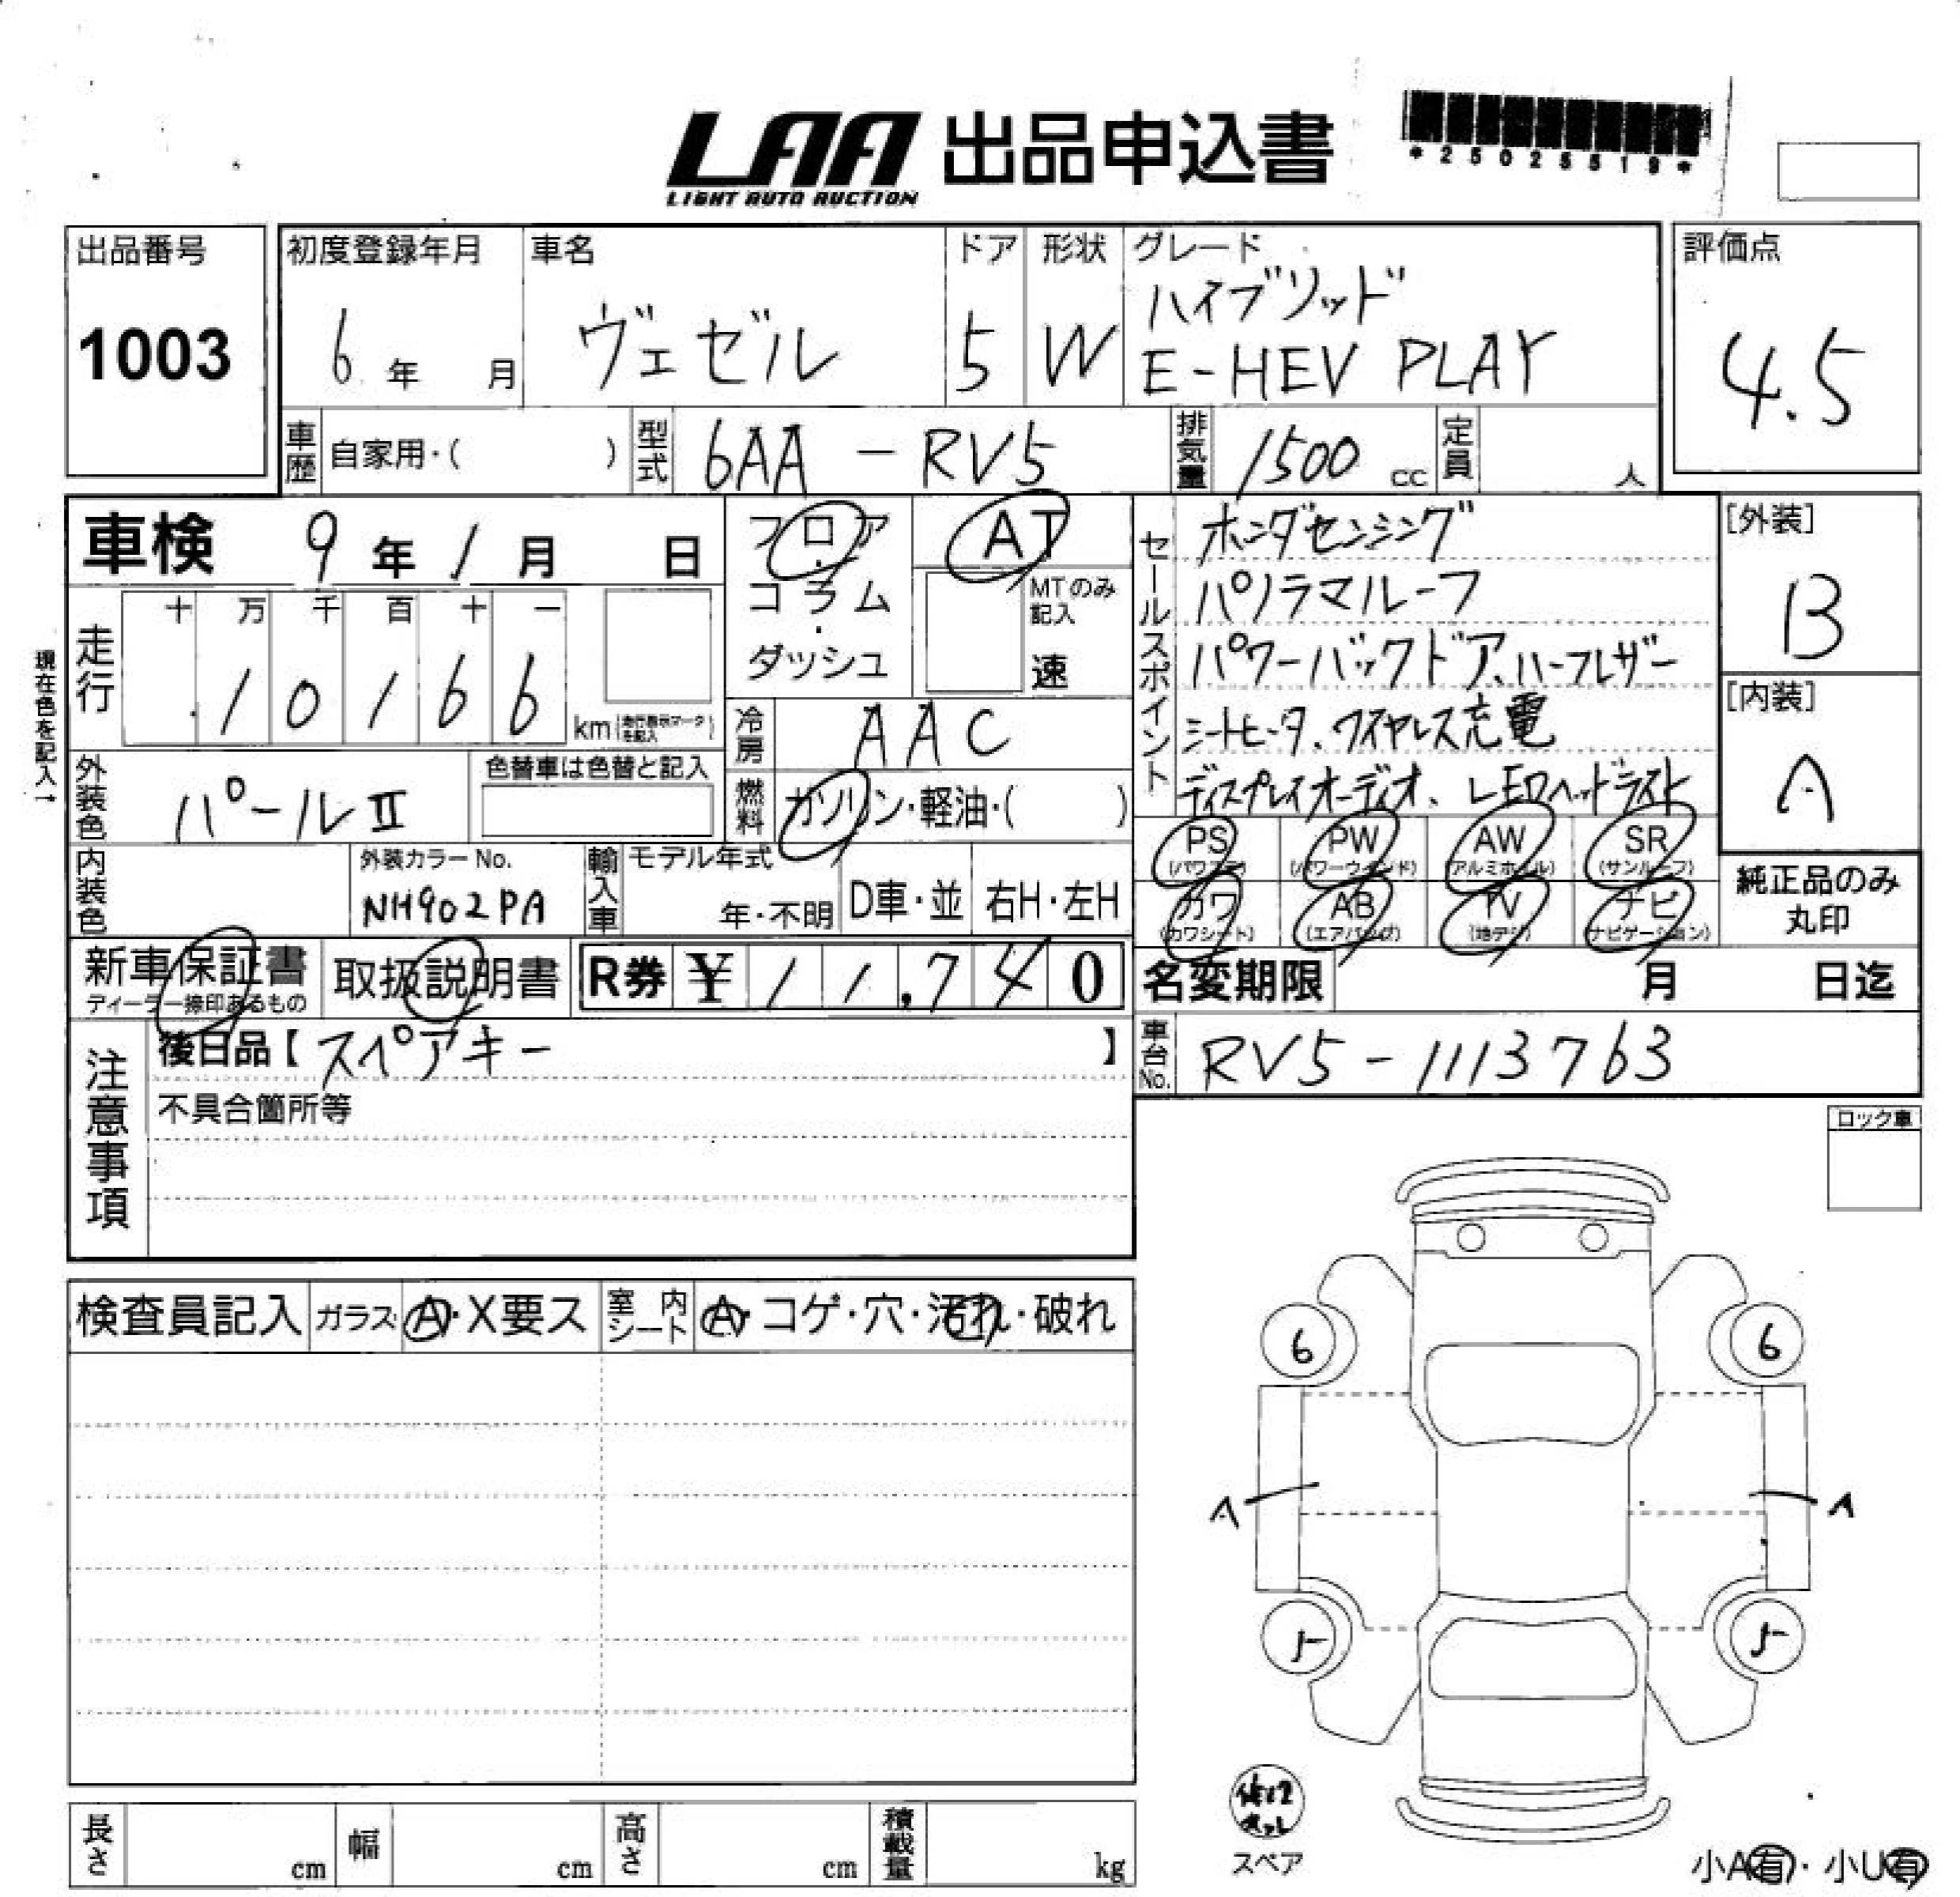 LAA 出品申込書
LIGHT AUTO AUCTION
*25025519*
出品番号 初度登録年月 車名 ドア 形状 グレード 評価点
1003 6年 月 ヴェゼル 5 W ハイブリッド
E-HEV PLAY 4.5
車歴 自家用・( ) 型式 6AA-RV5 排気量 1500 cc 定員 人
車検 9年 1月 日 フロア AT
コラム MTのみ記入
ダッシュ 速
現在色を記入→
走行 十 万 千 百 十 一
10166 km 走行表示マークを記入
冷房 AAC
外装色 パールⅡ 色替車は色替と記入
燃料 ガソリン・軽油・( )
セールスポイント
ホンダセンシング
パノラマルーフ
パワーバックドア、ハーフレザー
シートヒータ、ワイヤレス充電
ディスプレイオーディオ、LEDヘッドライト
[外装]
B
[内装]
A
PS (パワステ) PW (パワーウインド) AW (アルミホイール) SR (サンルーフ)
カワ (カワシート) AB (エアバッグ) TV (地デジ) ナビ (ナビゲーション)
純正品のみ
丸印
内装色 外装カラーNo. NH902PA 輸入車 モデル年式 年・不明 D車・並 右H・左H
新車保証書 ディーラー捺印あるもの 取扱説明書 R券 ¥11,740
名変期限 月 日迄
注意事項
後日品【スペアキー 】
不具合箇所等
車台No. RV5-1113763
ロック車
検査員記入 ガラス A・X要ス 室内シート A・コゲ・穴・汚れ・破れ
6 6
A A
5 5
スペア
長さ cm 幅 cm 高さ cm 積載量 kg
小A有・小U有